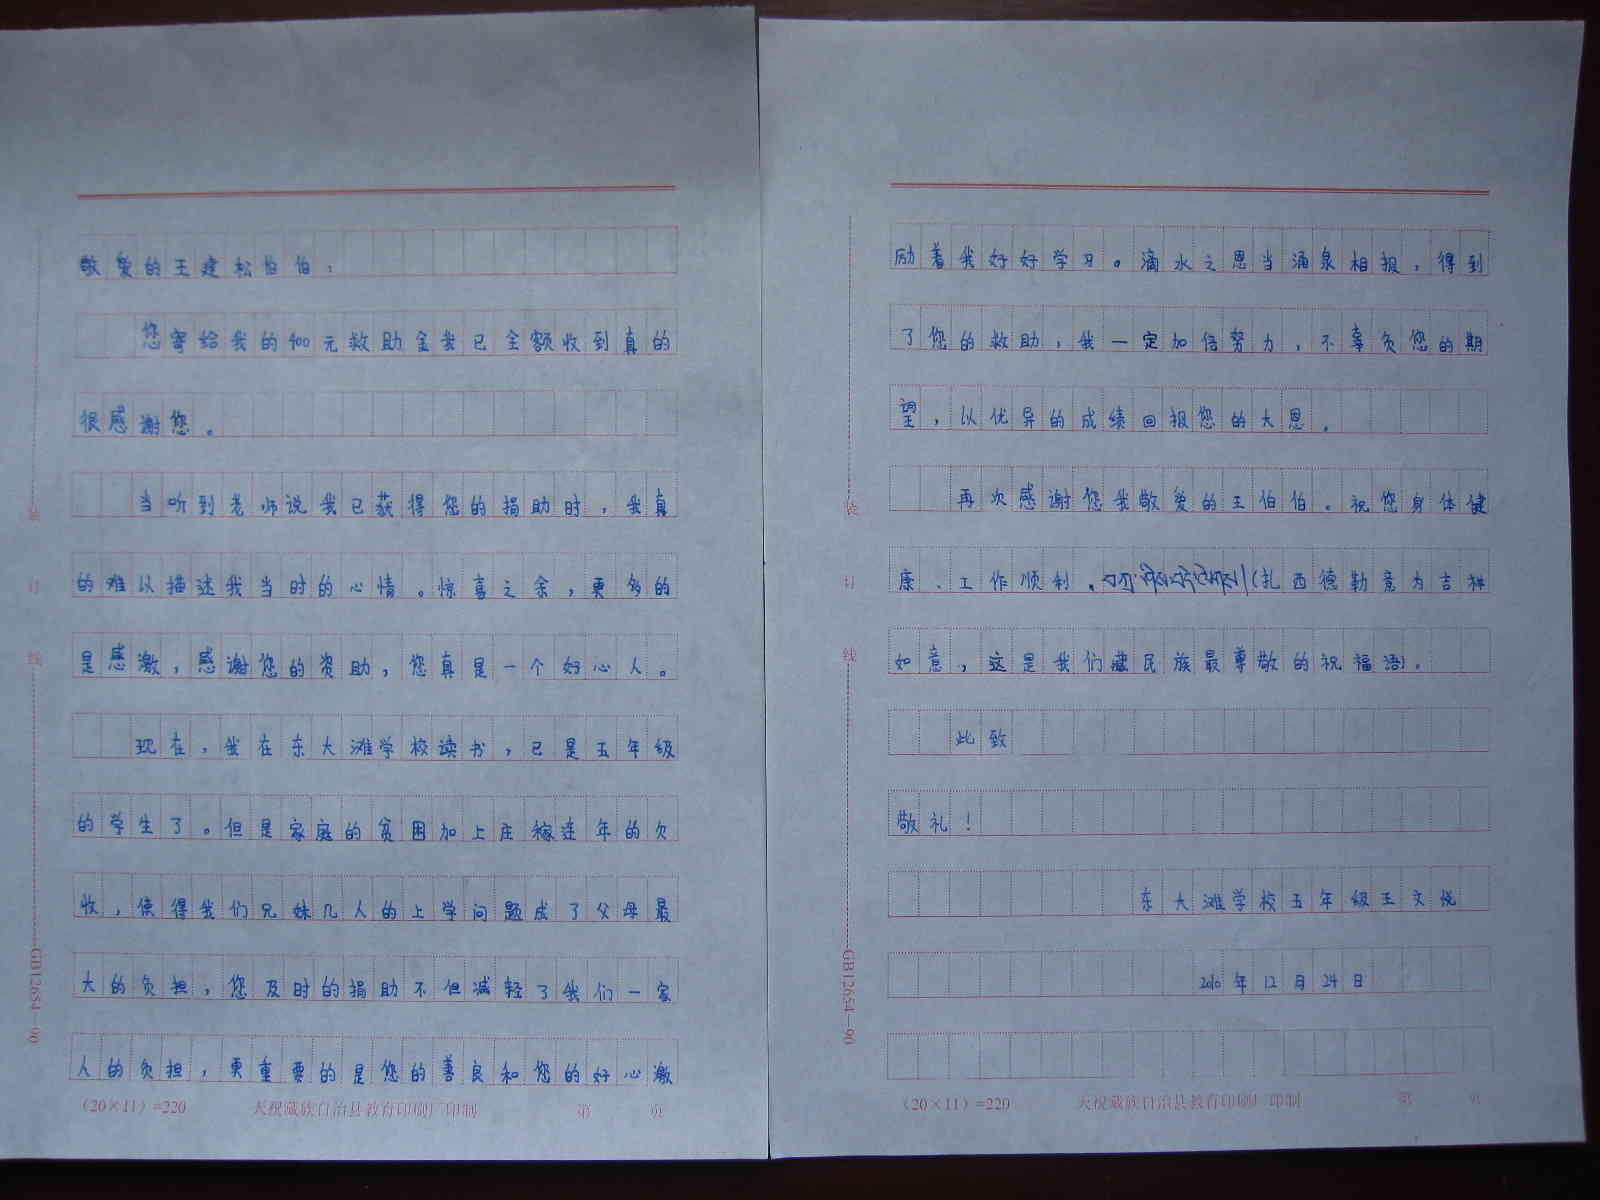 敬爱的王建松伯伯：
您寄给我的400元救助金我已全额收到真的
很感谢您。
当听到老师说我已获得您的捐助时，我真
的难以描述我当时的心情。惊喜之余，更多的
是感激，感谢您的资助，您真是一个好心人。
现在，我在东大滩学校读书，已是五年级
的学生了。但是家庭的贫困加上庄稼连年的欠
收，使得我们兄妹几人的上学问题成了父母最
大的负担，您及时的捐助不但减轻了我们一家
人的负担，更重要的是您的善良和您的好心激
(20×11)=220 天祝藏族自治县教育印刷厂印制 第 页
装
订
线
GB12654—90
励着我好好学习。滴水之恩当涌泉相报，得到
了您的救助，我一定加倍努力，不辜负您的期
望，以优异的成绩回报您的大恩。
再次感谢您我敬爱的王伯伯。祝您身体健
康、工作顺利。(扎西德勒意为吉祥
如意，这是我们藏民族最尊敬的祝福语)。
此致
敬礼！
东大滩学校五年级王文悦
2010年12月24日
(20×11)=220 天祝藏族自治县教育印刷厂印制 第 页
装
订
线
GB12654—90